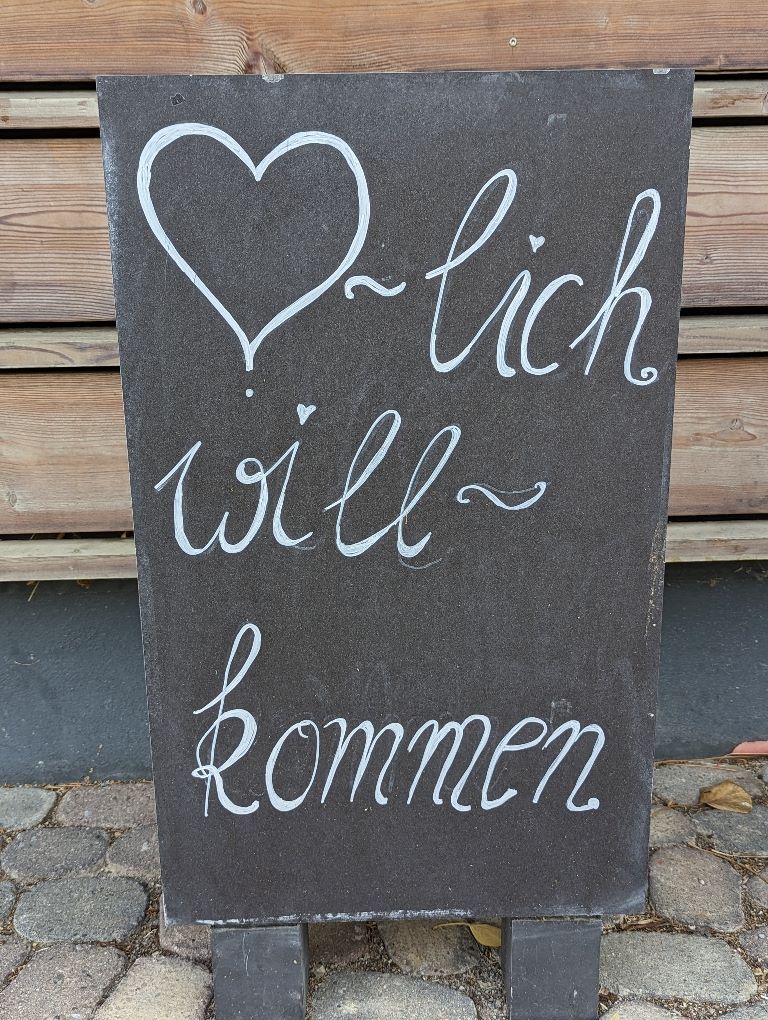 ♡~lich
will~
kommen